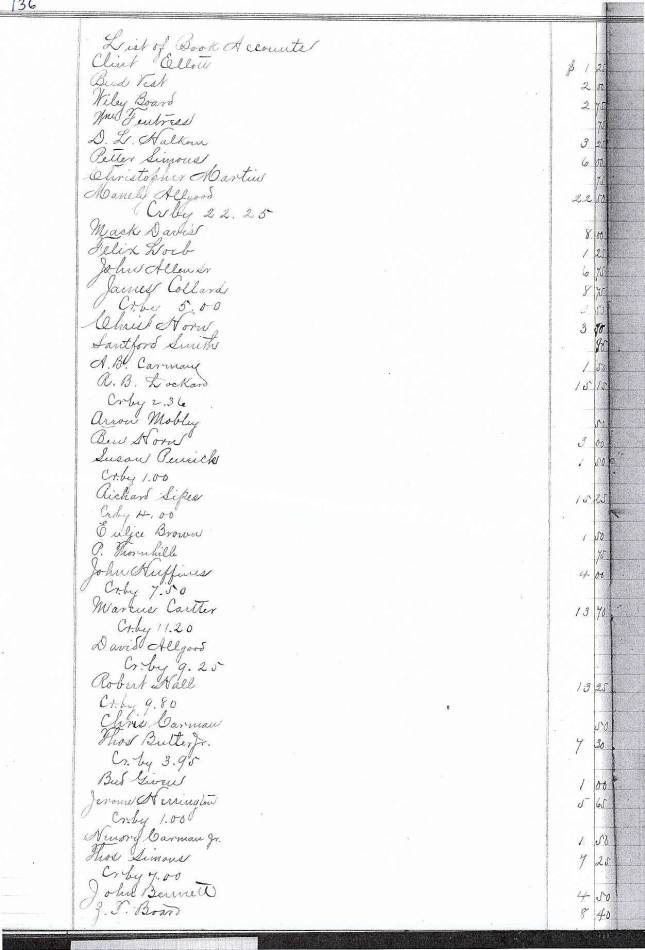 136
List of Book Accounts
Clint Ellott $ 1 25
Bud Vest 2 00
Wiley Board 2 75
Wm Fentress 75
D. L. Halkom 3 25
Petter Simons 6 00
Christopher Martin 75
Allgood 22 50
Cr by 22.25
Mack Davis 8 00
Felix Loeb 1 25
John Allen sr 6 75
James Collard 8 75
Cr. by 5.00
Christ Horn 3 90
Santford Smith
A. B. Carman 1 50
R. B. Lockard 15 15
Cr by 2.36
Arrow Mobley 50
Ben Horn 3 00
Susan Penick 1 50
Cr. by 1.00
Richard Sipes 15 25
Cr by 4.00
Brown 1 50
P. Thornhill 75
John Huffines 4 00
Cr. by 7.50
Marcus Cartter 13 70
Cr. by 11.20
David Allgood
Cr. by 9.25
Robert Hall 13 25
Cr. by 9.80
Chris Carman 50
Thos Butter Jr. 7 30
Cr. by 3.95
Bud Given 1 00
Jerome Herrington 5 65
Cr. by 1.00
Carman Jr. 1 50
Thos Simons 7 25
Cr by 7.00
John Bennett 4 50
Z. T. Board 8 40